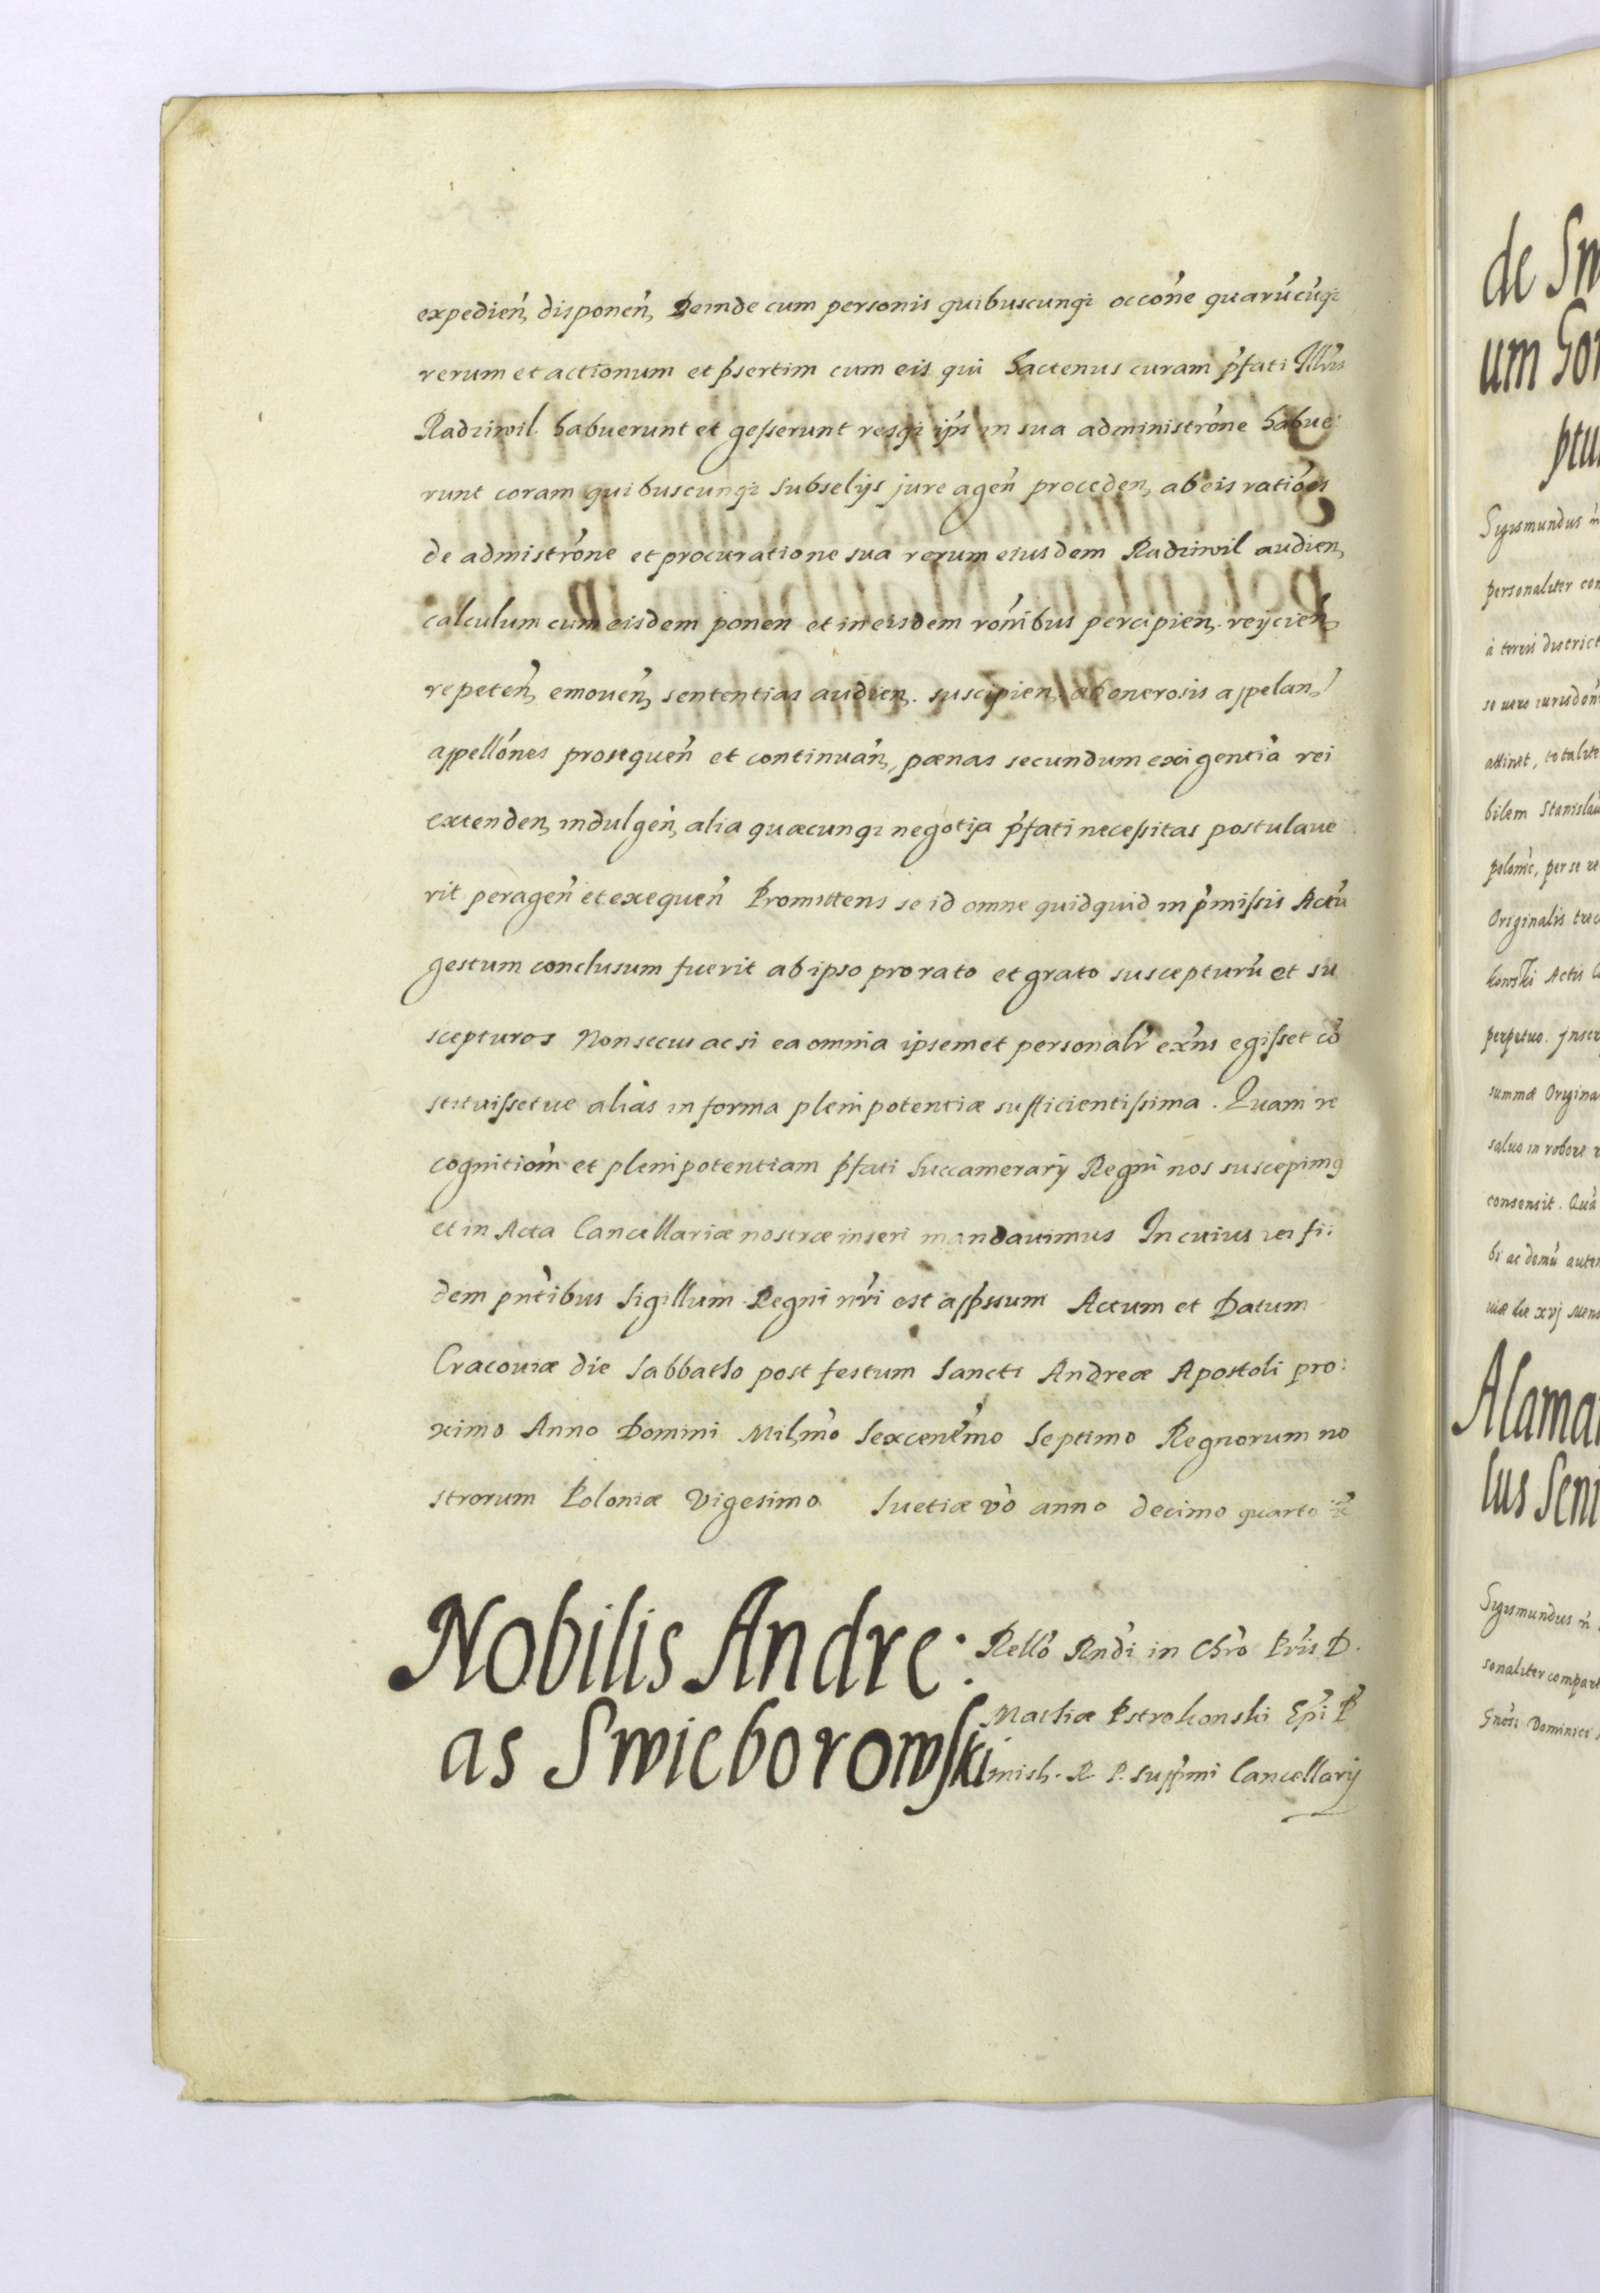 expedien̄, disponen̄, Deinde cum personis quibuscunqȝ occōne quarūcūqȝ
rerum et actionum et p̄sertim cum eis qui hactenus curam p̄fati Illris
Radziwil habuerunt et gesserunt resqȝ ipis in sua administrōne habue:
runt coram quibuscunqȝ Subselijs jure agen̄ proceden, ab eis ratiōes
de admistrōne et procuratione sua rerum eiusdem Radziwil audien,
calculum cum eisdem ponen et in eisdem rōnibus percipien, reijcien̄,
repeten̄, emouen̄, sententias audien. suscipien, ab onerosis appelan,
appellōnes prosequen̄ et continuan̄, pœnas secundum exigentiā rei
extenden, indulgen̄, alia quæcunqȝ negotia p̄fati necessitas postulaue
rit peragen̄ et exequen̄ Promittens se id omne quidquid in p̄missis Actū
gestum conclusum fuerit ab ipso pro rato et grato suscepturū et su
scepturos Non secus ac si ea omnia ipsemet personalr̄ exn̄s egisset cō
stituissetue aliàs in forma plenipotentiæ sufficientissima. Quam re
cognitiom̄ et plenipotentiam p̄fati Succamerarij Regni nos suscepimȝ
et in Acta Cancellariæ nostræ inseri mandauimus In cuius rei fi:
dem pn̄tibus Sigillum Regni nr̄i est app̄ssum Actum et Datum
Cracouiæ die Sabbatho post festum Sancti Andreæ Apostoli pro:
ximo Anno Domini Milmo Sexcentmo Septimo Regnorum no
strorum Poloniæ Vigesimo Suetiæ vō anno decimo quarto
Nobilis Andre:
as Swieborowski
Rellō Rndi in Chrō Pris D.
Mathiæ Pstrokonski Epi P
misl. R. P. supp̄mi Cancellarij
de
um
Sigismundus
personaliter
à terris district
attinet, totalite
bilem Stanislau
per se
Originalis
kowski Actis
perpetuo. Inscr
summæ Origina
saluo in robore
consensit. Quā
bi ac demū auten
Sigismundus
sonaliter compare
Dominici